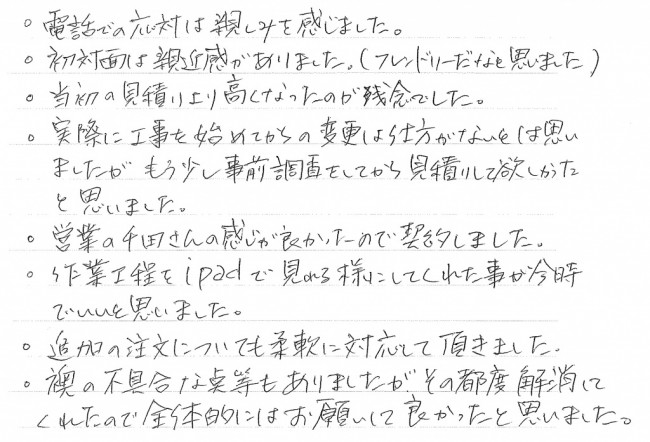 ○ 電話での応対は親しみを感じました。
○ 初対面は親近感がありました。(フレンドリーだなと思いました)
○ 当初の見積りより高くなったのが残念でした。
○ 実際に工事を始めてからの変更は仕方がないとは思い
ましたが もう少し事前調査をしてから見積りして欲しかった
と思いました。
○ 営業の千田さんの感じが良かったので契約しました。
○ 作業工程をipadで見れる様にしてくれた事が今時
でいいと思いました。
○ 追加の注文についても柔軟に対応して頂きました。
○ 襖の不具合な点等もありましたがその都度解消して
くれたので全体的にはお願いして良かったと思いました。